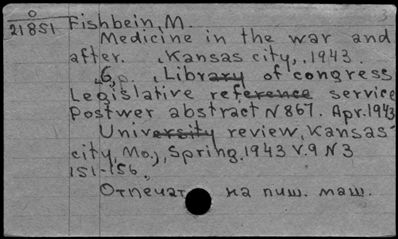 0
21851 Fishbein, M. 3
Medicine in the war and
after. Kansas city, 1943.
6 p. (Library of congress
Legislative reference service
Postwer abstract N 867. Apr. 1943
University review, Kansas-
city, Mo., Spring, 1943 V.9 N 3
151-156.
Отпечат на пиш. маш.